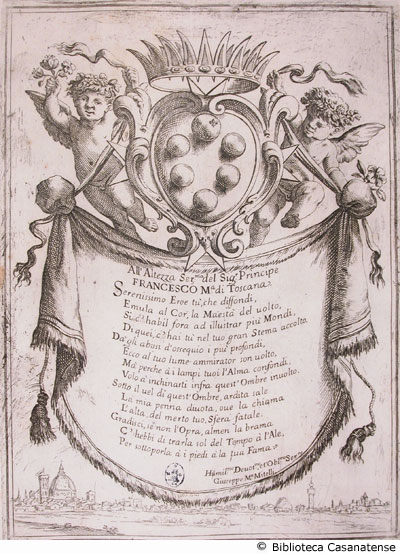 All' Altezza Ser.ma del Sig.r Principe
FRANCESCO M.a di Toscana
Serenissimo Eroe tu, che diffondi,
Emula al Cor, la Maestà del uolto,
Si, c'habil fora ad illustrar più Mondi,
Di quei, c'hai tu nel tuo gran Stema accolto.
Da gli abissi d'ossequio i più profondi,
Ecco al tuo lume ammirator son uolto,
Ma perche a i lampi tuoi l'Alma confondi,
Volo a' inchinarti infra quest'Ombre inuolto.
Sotto il uel di quest'Ombre, ardita sale
La mia penna diuota, oue la chiama
L'alta, del merto tuo, Sfera fatale.
Gradisci, se non l'Opra, almen la brama
C'hebbi di trarla sol del Tempo à l'Ale,
Per sottoporla à i piedi à la tua Fama.
Humil.mo Deuot.mo et Obl.mo Ser.re
Giuseppe M.a Mitelli
© Biblioteca Casanatense